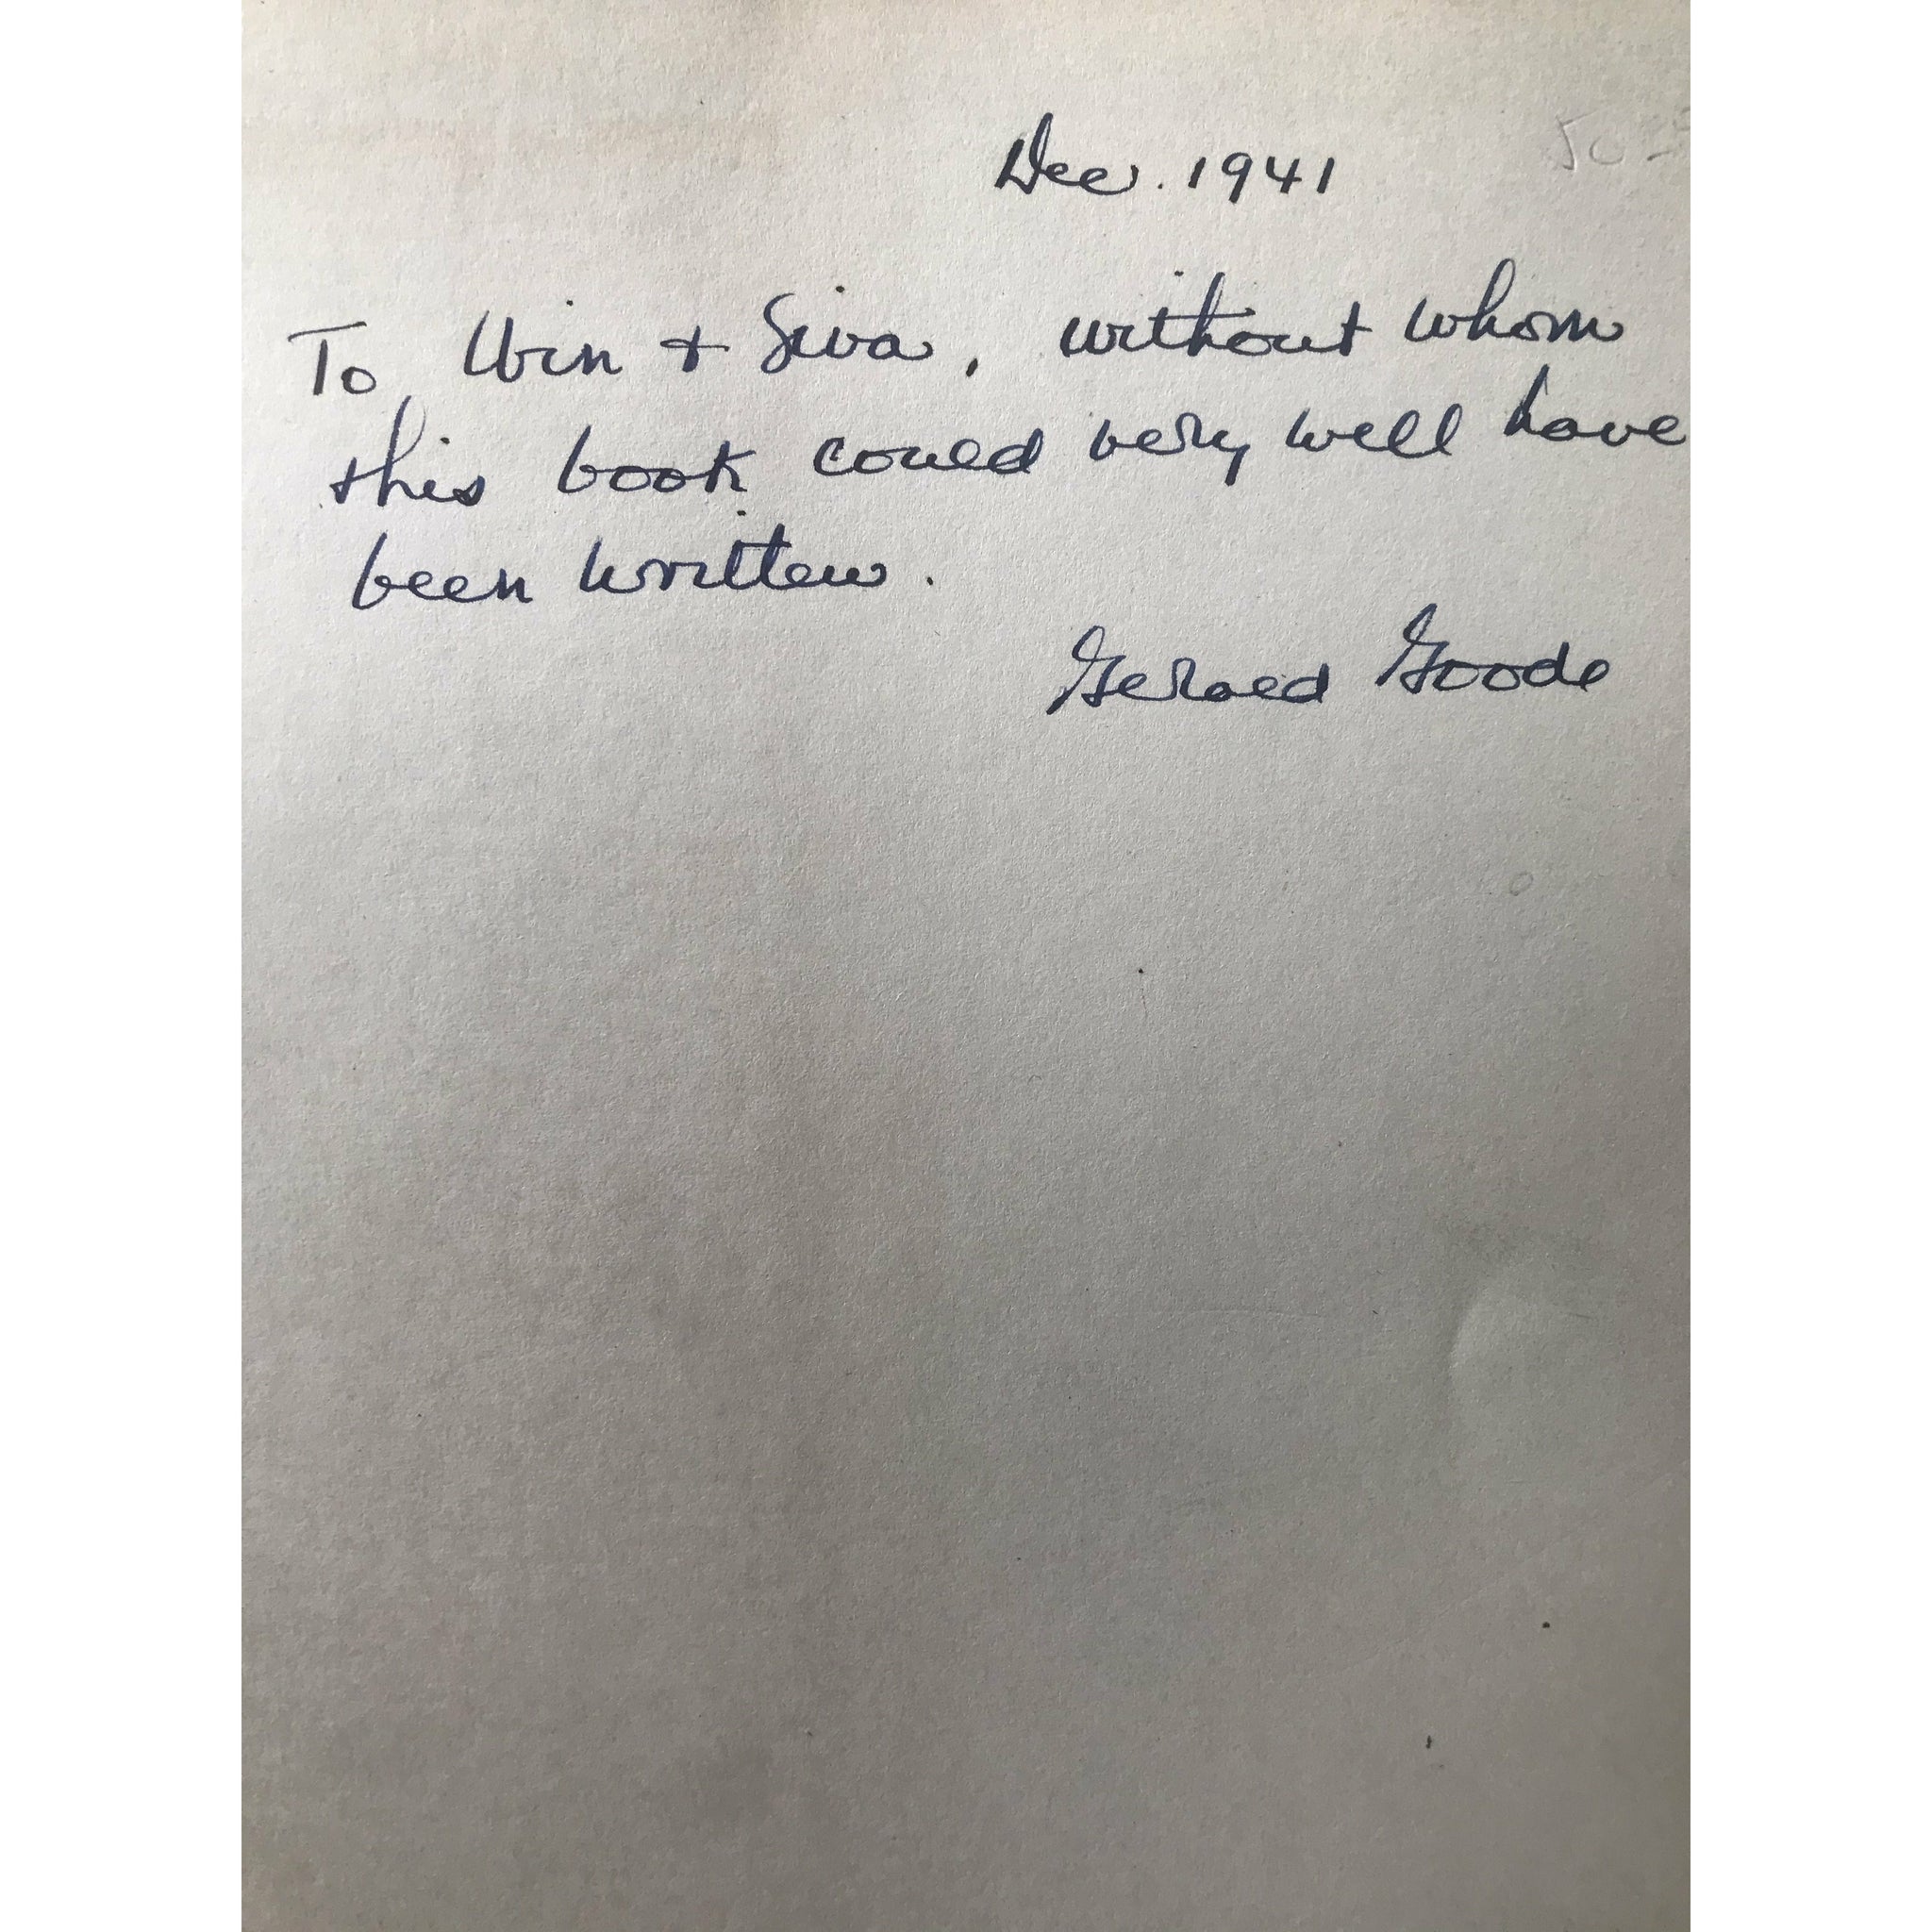 Dec. 1941
To Win + Siva, without whom
this book could very well have
been written.
Gerald Goode